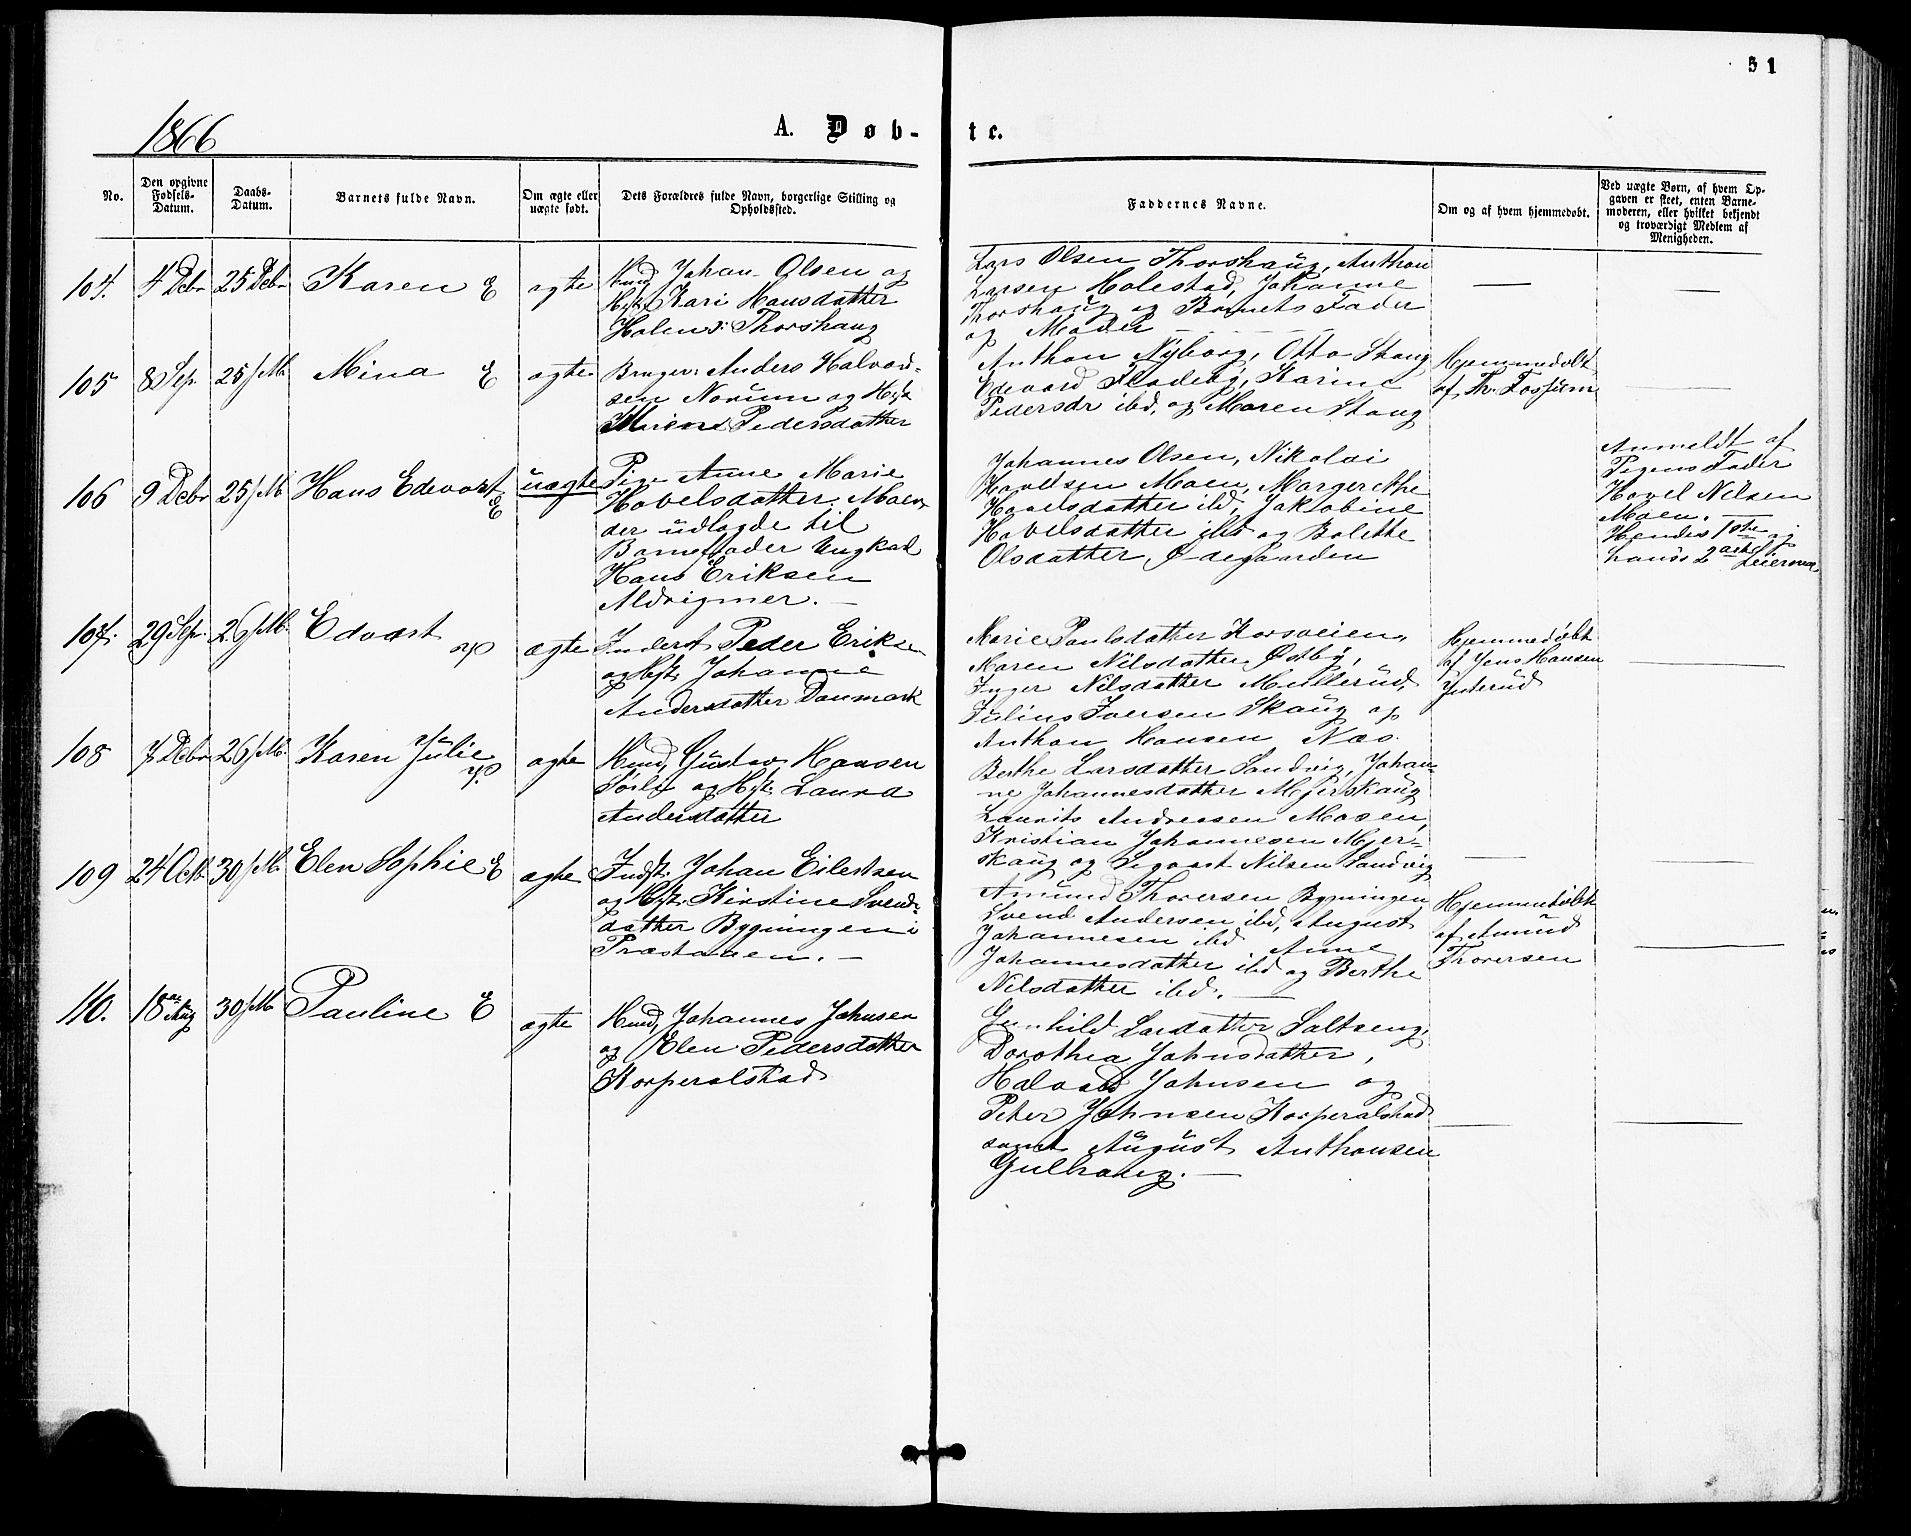 51
1866
A. Døb-
te.
No.
Den opgivne Fødsels-Datum.
Daabs-Datum.
Barnets fulde Navn.
Om ægte eller uægte født.
Dets Forældres fulde Navn, borgerlige Stilling og Opholdssted.
Faddernes Navne.
Om og af hvem hjemmedøbt.
Ved uægte Børn, af hvem Opgaven er skeet, enten Barnemoderen, eller hvilket bekjendt og troværdigt Medlem af Menigheden.
104. 4 Debr 25 Debr Karen E ægte
Hmd Johan Olsen og
Hst. Kari Hansdatter
Thorshaug
Lars Olsen Thorshaug, Anthon
Larsen Holestad, Johanne
Thorshaug og Barnets Fader
og Moder
105 8 Sep. 25/M. Mina E ægte
Bruger: Anders Halvor-
sen Norum og Hst
Pedersdatter
Anthon Nyborg, Otto Skaug
Edevard Fladeby, Karine
Pedersdr ibd, og Maren Skaug
Hjemmedøbt
af Th. Fossum
106 9 Debr 25/M Hans Edevart E uægte
Pige Anne Marie
Hovelsdatter, Moen,
der udlagde til
Barnefader Ungkarl
Hans Eriksen
Johannes Olsen, Nikolai
Hovelsen Moen, Margrethe
Hovelsdatter ibd, Jakobine
Hovelsdatter ibd og Bolette
Olsdatter Ødegaarden
Anmeldt af
Pigens Fader
Hovel Nilsen
Moen.
Hendes 1ste og
hans 2det Leiermaal
107. 29 Sep. 26/M. Edvart ægte
Inderst Peder Eriksen
og Hst. Johanne
Andersdatter Danmark
Marie Paulsdatter Korsveien,
Maren Nilsdatter Østby,
Inger Nilsdatter Mullerud,
Julius Iversen Skaug og
Anthon Hansen Næs.
Hjemmedøbt
af Jens Hansen
108 7 Debr 26/M. Karen Julie ægte
Hmd, Gustav Hansen
Sørli og Hst. Laura
Andersdatter
Berthe Larsdatter Sandvig, Johan-
ne Johannesdatter Mjerskaug
Laurits Andreasen Moen,
Kristian Johannesen Mjer-
skaug og Sigvart Nilsen Sandvig
109 24 Octb 30/M. Elen Sophie E ægte
Indst. Johan Eilertsen
og Hst. Kirstine Svends-
datter Bygningen i
Amund Thoresen Bygningen
Svend Andersen ibd, August
Johannesen ibd Anne
Johannesdatter ibd og Berthe
Nilsdatter ibd.
Hjemmedøbt
af Amund
Thoresen
110. 18 Aug 30/M Pauline E ægte
Hmd, Johannes Johnsen
og Elen Pedersdatter
Korperalstad
Gunhild Larsdatter Saltseng,
Dorothea Johnsdatter,
Halvard Johnsen og
Peter Johnsen Korperalstad
samt August Anthonsen
Gulhaug.